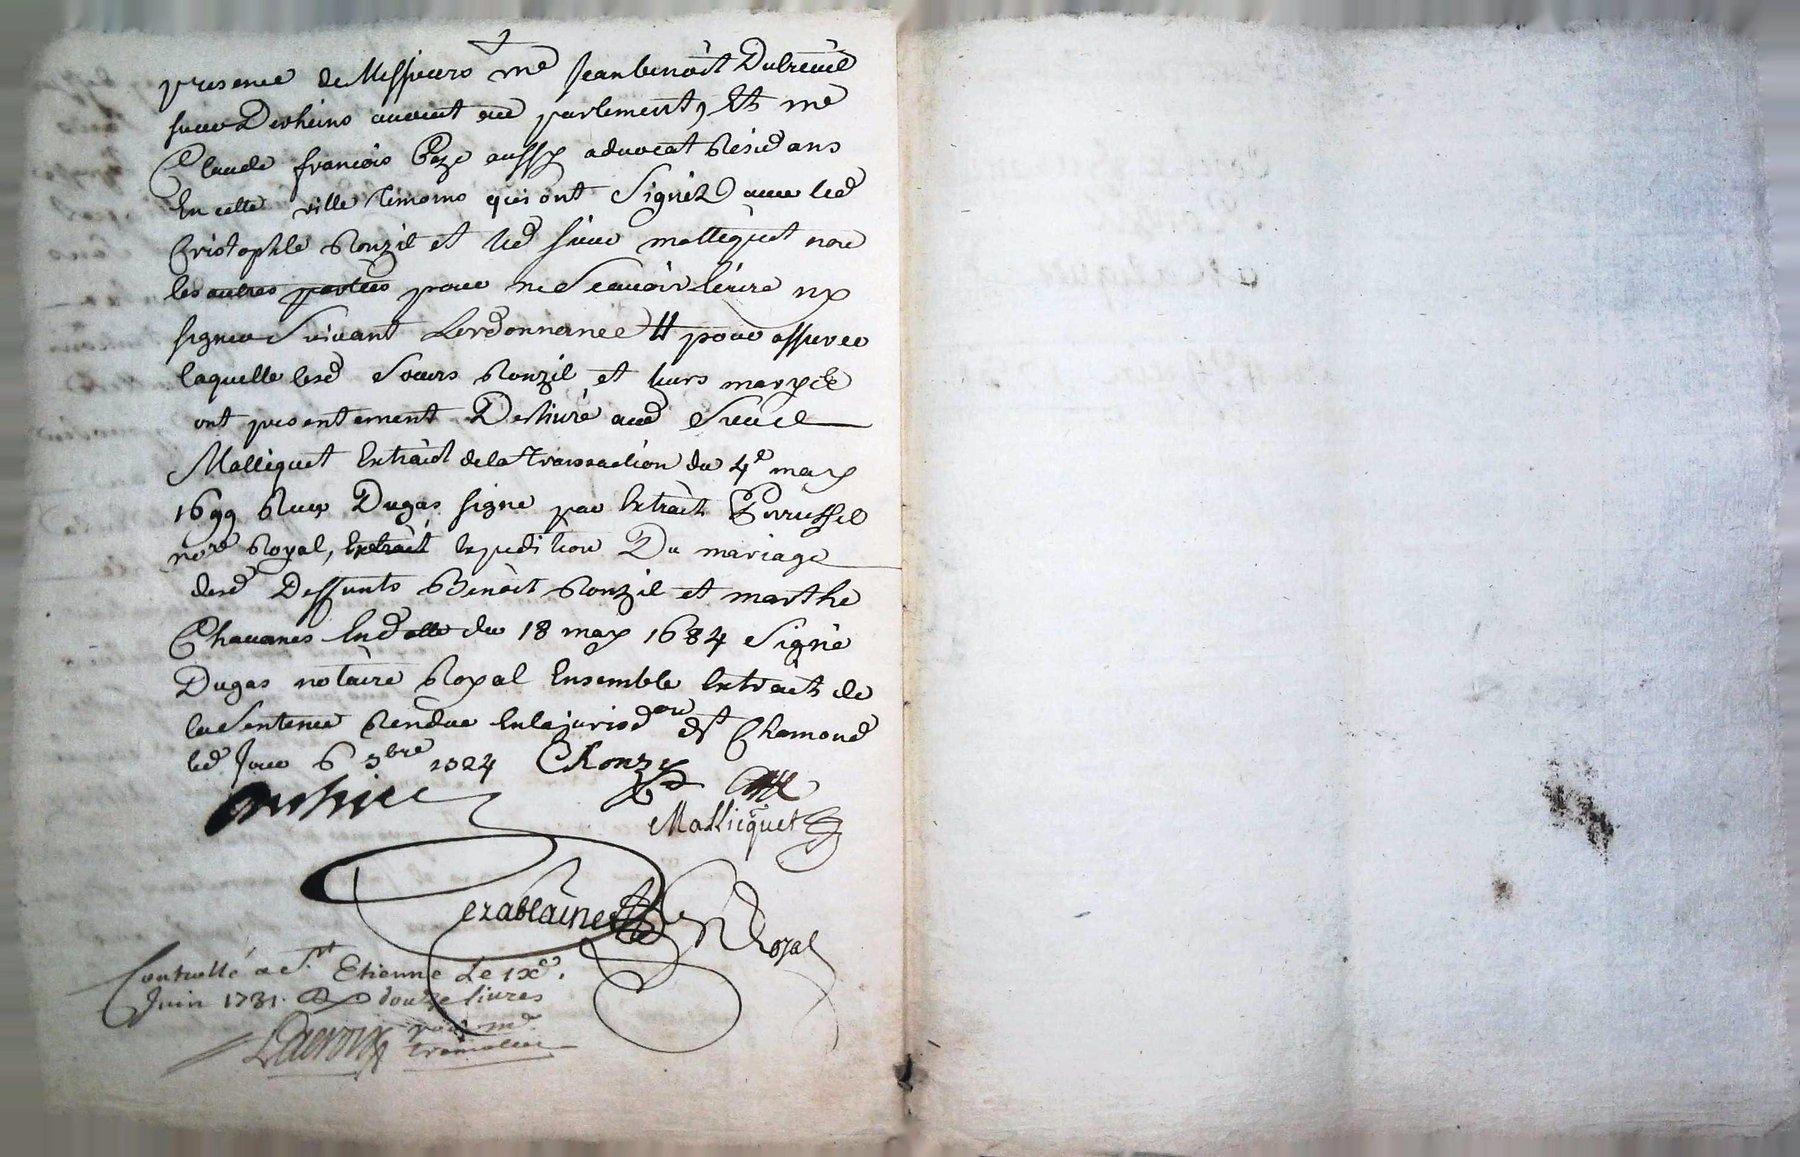 presence de Messieurs me Jean benoist Dubreüil
sieur Desheins avocat au parlement, Et me
Claude françois Paze aussy advocat Residans
En cette ville temoins qui ont Signéz avec led
Cristophle Ronzil et led sieur mallequet non
les autres parties pour ne Scauoir Ecrire ny
signer Suivant Lordonnance # pour assurer
laquelle lesd Soeurs Ronzil et leurs marys
ont presentement Deslivré aud Sieur
Malliquet Extraict de la transaction du 4e may
1699 Reçu Dugas signe par Extraict
nore Royal, Extrait Expedition Du mariage
desd Deffunts Benoit Ronzil et marthe
Chavanes du 18 may 1684 Signé
Dugas notaire Royal Ensemble Extraict de
la Sentence Rendue En la jurisdon de St Chamond
led Jour 6 1724 CRonzil
Mallicquet
Royal
Controllé a St. Etienne Le
Juin 1731. douze livres
Lacroix